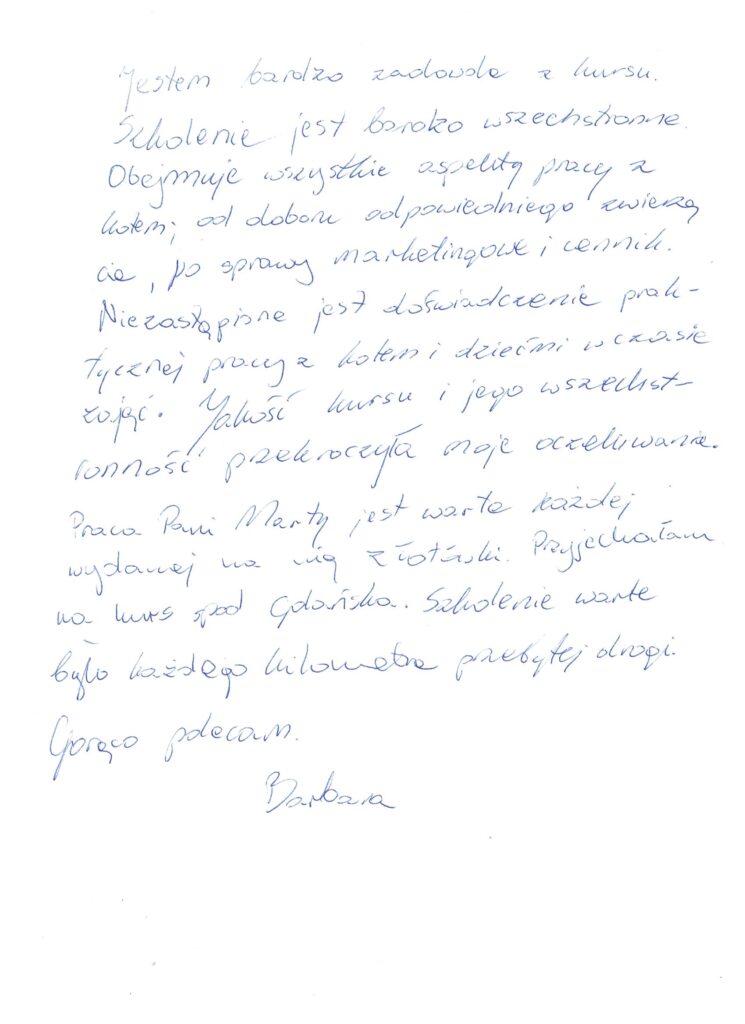 Jestem bardzo zadowolona z kursu.
Szkolenie jest bardzo wszechstronne.
Obejmuje wszystkie aspekty pracy z
kotem; od doboru odpowiedniego zwierzą
cia, po sprawy marketingowe i cennik.
Niezastąpione jest doświadczenie prak-
tycznej pracy z kotem i dziećmi w czasie
zajęć. Jakość kursu i jego wszechst-
ronność przekroczyła moje oczekiwania.
Praca Pani Marty jest warta każdej
wydanej na nią złotówki. Przyjechałam
na kurs spod Gdańska. Szkolenie warte
było każdego kilometra przebytej drogi.
Gorąco polecam.
Barbara